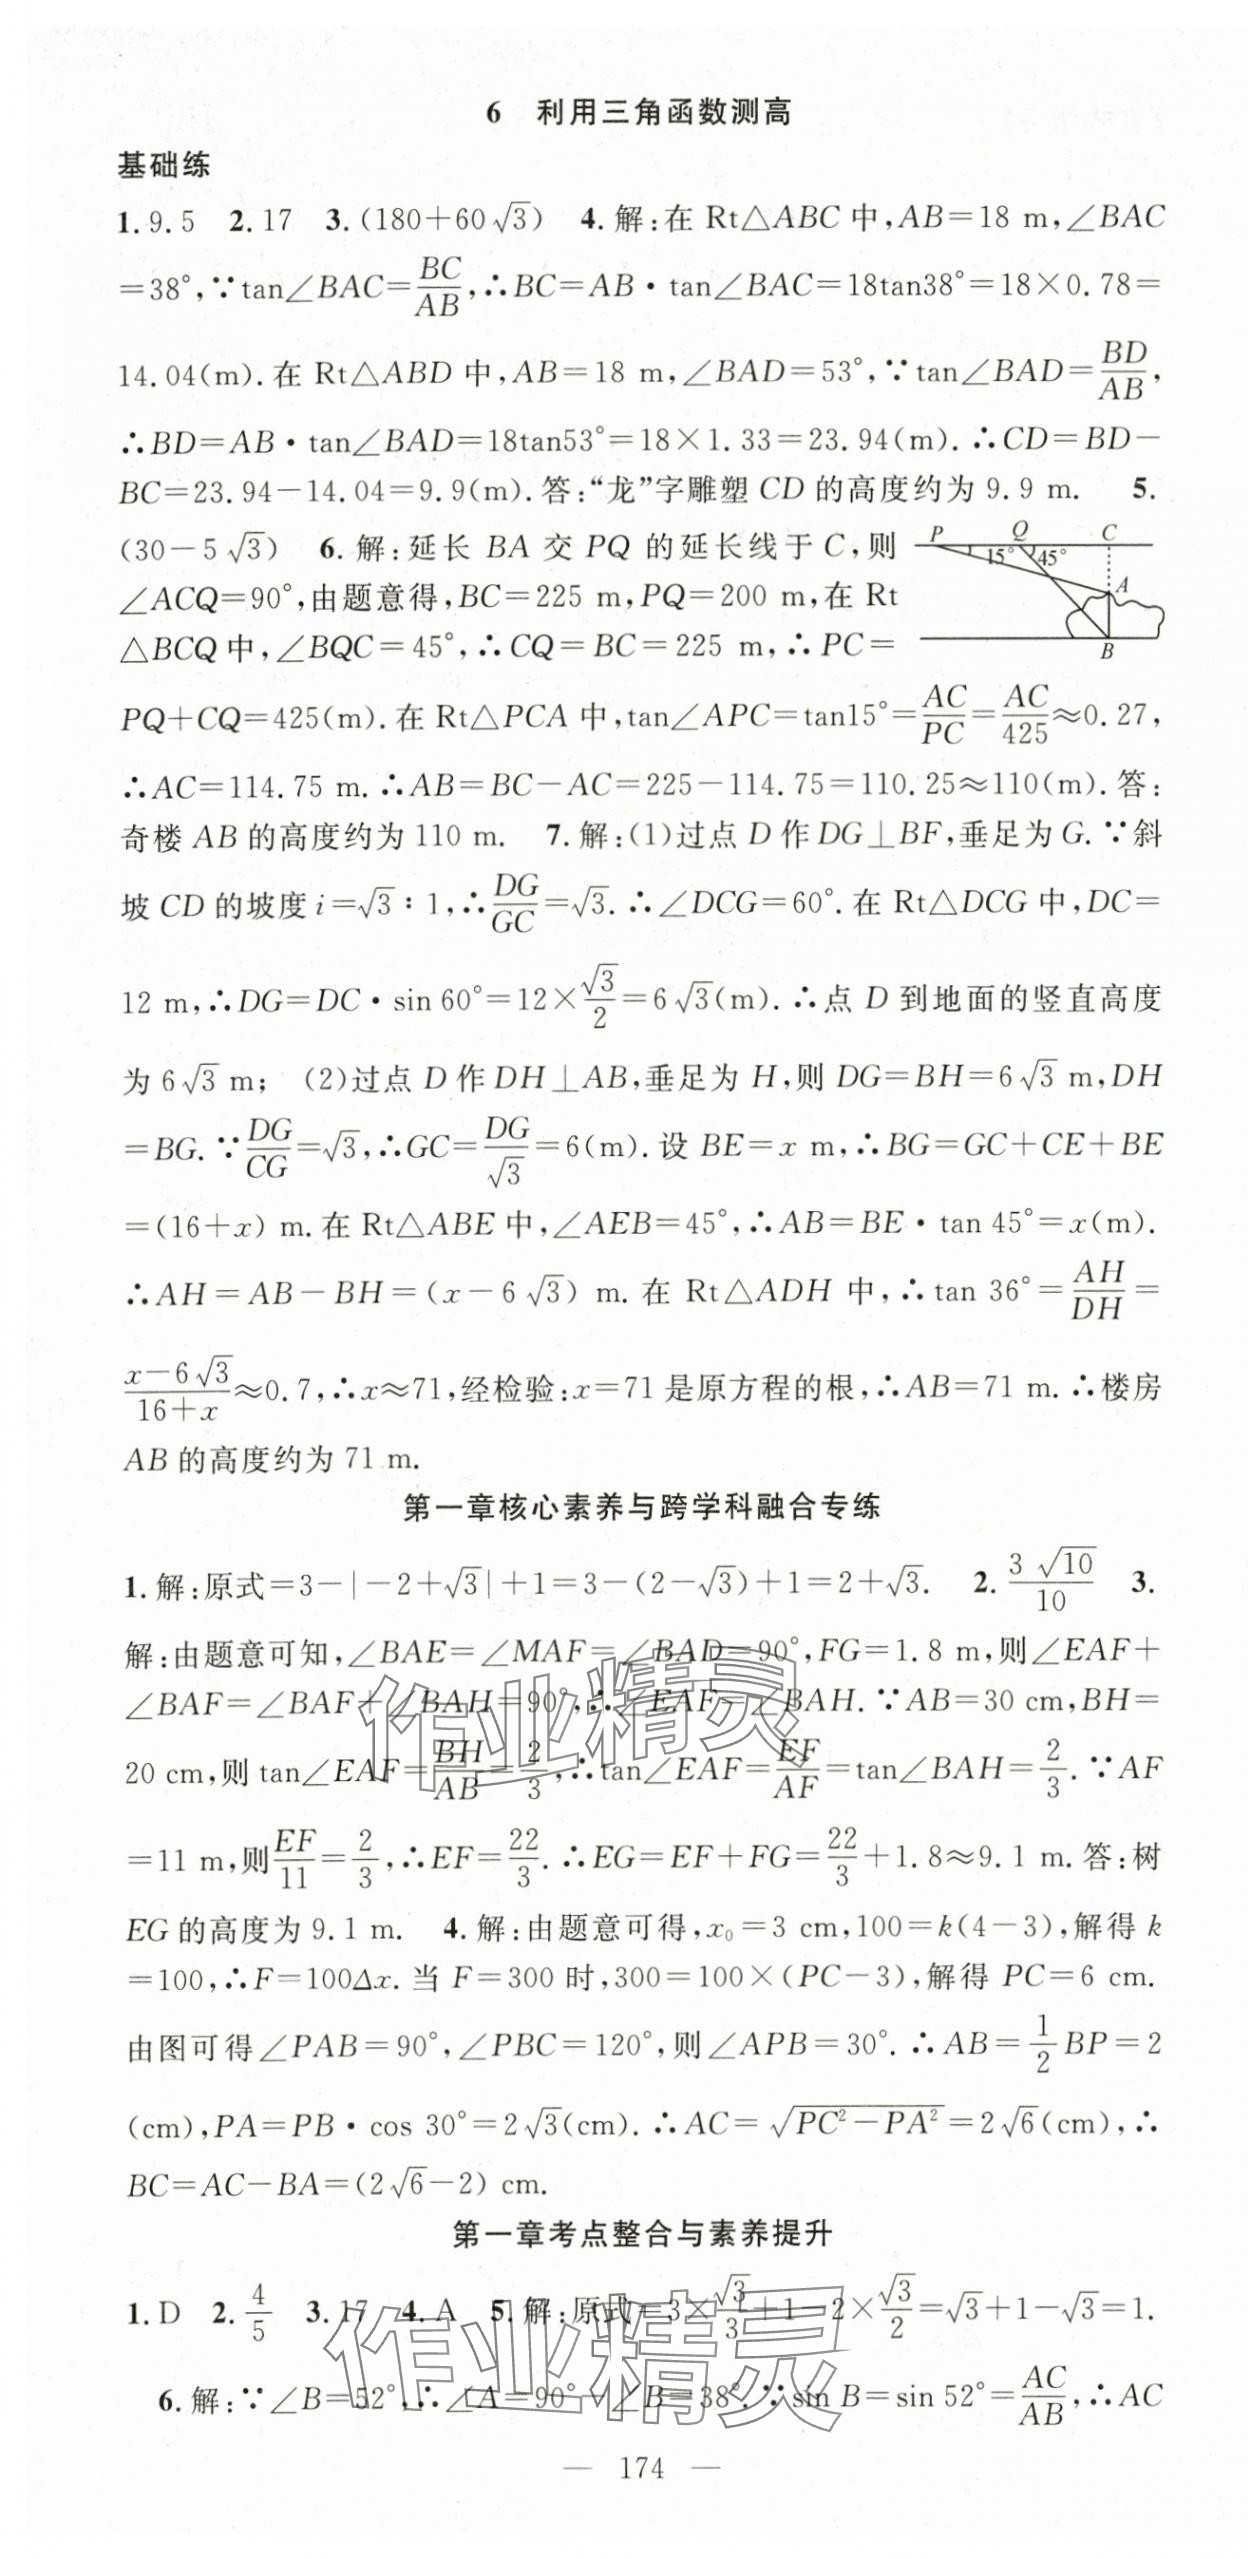 6 利用三角函数测高
基础练
1.9.5 2.17 3.(180+60√3) 4.解:在 Rt△ABC 中,AB=18 m,∠BAC
=38°,∵tan∠BAC=BC/AB,∴BC=AB·tan∠BAC=18tan38°=18×0.78=
14.04(m).在 Rt△ABD 中,AB=18 m,∠BAD=53°,∵tan∠BAD=BD/AB,
∴BD=AB·tan∠BAD=18tan53°=18×1.33=23.94(m).∴CD=BD-
BC=23.94-14.04=9.9(m).答:“龙”字雕塑 CD 的高度约为 9.9 m. 5.
(30-5√3) 6.解:延长 BA 交 PQ 的延长线于 C,则
P Q C
15° 45°
A
B
∠ACQ=90°,由题意得,BC=225 m,PQ=200 m,在 Rt
△BCQ 中,∠BQC=45°,∴CQ=BC=225 m,∴PC=
PQ+CQ=425(m).在 Rt△PCA 中,tan∠APC=tan15°=AC/PC=AC/425≈0.27,
∴AC=114.75 m.∴AB=BC-AC=225-114.75=110.25≈110(m).答:
奇楼 AB 的高度约为 110 m. 7.解:(1)过点 D 作 DG⊥BF,垂足为 G.∵斜
坡 CD 的坡度 i=√3∶1,∴DG/GC=√3.∴∠DCG=60°.在 Rt△DCG 中,DC=
12 m,∴DG=DC·sin 60°=12×√3/2=6√3(m).∴点 D 到地面的竖直高度
为 6√3 m; (2)过点 D 作 DH⊥AB,垂足为 H,则 DG=BH=6√3 m,DH
=BG.∵DG/CG=√3,∴GC=DG/√3=6(m).设 BE=x m,∴BG=GC+CE+BE
=(16+x) m.在 Rt△ABE 中,∠AEB=45°,∴AB=BE·tan 45°=x(m).
∴AH=AB-BH=(x-6√3) m.在 Rt△ADH 中,∴tan 36°=AH/DH=
(x-6√3)/(16+x)≈0.7,∴x≈71,经检验:x=71 是原方程的根,∴AB=71 m.∴楼房
AB 的高度约为 71 m.
第一章核心素养与跨学科融合专练
1.解:原式=3-|-2+√3|+1=3-(2-√3)+1=2+√3. 2.3√10/10 3.
解:由题意可知,∠BAE=∠MAF=∠BAD=90°,FG=1.8 m,则∠EAF+
∠BAF=∠BAF+∠BAH=90°,∴∠EAF=∠BAH.∵AB=30 cm,BH=
20 cm,则 tan∠EAF=BH/AB=2/3,∴tan∠EAF=EF/AF=tan∠BAH=2/3.∵AF
=11 m,则EF/11=2/3,∴EF=22/3.∴EG=EF+FG=22/3+1.8≈9.1 m.答:树
EG 的高度为 9.1 m. 4.解:由题意可得,x₀=3 cm,100=k(4-3),解得 k
=100,∴F=100Δx.当 F=300 时,300=100×(PC-3),解得 PC=6 cm.
由图可得∠PAB=90°,∠PBC=120°,则∠APB=30°.∴AB=1/2BP=2
(cm),PA=PB·cos 30°=2√3(cm).∴AC=√(PC²-PA²)=2√6(cm),∴
BC=AC-BA=(2√6-2) cm.
第一章考点整合与素养提升
1.D 2.4/5 3.17 4.A 5.解:原式=3×√3/3+1-2×√3/2=√3+1-√3=1.
6.解:∵∠B=52°,∴∠A=90°-∠B=38°.∵sin B=sin 52°=AC/AB,∴AC
— 174 —
作业精灵
作业精灵